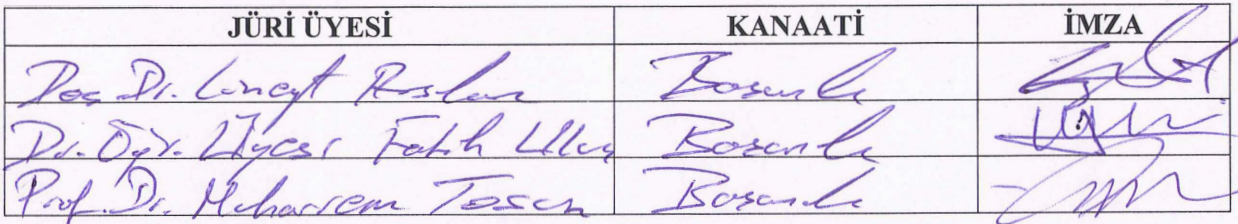 JÜRİ ÜYESİ KANAATİ İMZA
Doç. Dr. Cüneyt Arslan Başarılı
Dr. Öğr. Üyesi Fatih Başarılı
Prof. Dr. Muharrem Tosun Başarılı